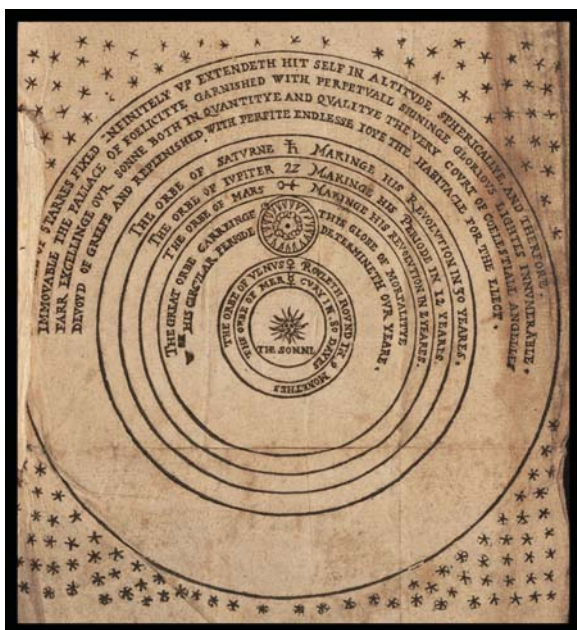 OF STARRES FIXED NFINITELY VP EXTENDETH HIT SELF IN ALTITVDE SPHERICALLYE AND THERFORE
IMMOVABLE THE PALLACE OF FOELICITYE GARNISHED WITH PERPETVALL SHININGE GLORIOVS LIGHTES INNVMERABLE.
FARR EXCELLINGE OVR SONNE BOTH IN QVANTITYE AND QVALITYE THE VERY COVRT OF COELESTIALL ANGELLES
DEVOYD OF GREEFE AND REPLENISHED WITH PERFITE ENDLESSE IOYE THE HABITACLE FOR THE ELECT.
THE ORBE OF SATVRNE ♄ MAKINGE HIS REVOLVTION IN 30 YEARES.
THE ORBE OF IVPITER ♃ MAKINGE HIS PERIODE IN 12 YEARES.
THE ORBE OF MARS ♂ MAKINGE HIS REVOLVTION IN 2 YEARES.
THE GREAT ORBE CARREINGE THIS GLOBE OF MORTALITYE
HIS CIRCVLAR PERIODE DETERMINETH OVR YEARE.
THE ORBE OF VENVS ♀ ROVLETH ROVND IN 9 MONETHES
THE ORBE OF MERCVRY IN 80 DAYES
THE SONNE